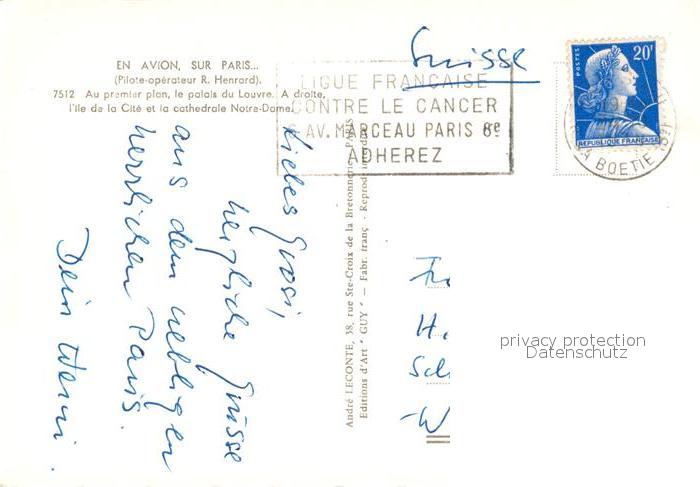 EN AVION, SUR PARIS...
(Pilote-opérateur R. Henrard).
7512 Au premier plan, le palais du Louvre. A droite,
l'île de la Cité et la cathédrale Notre-Dame.
Suisse
LIGUE FRANÇAISE
CONTRE LE CANCER
AV. MARCEAU PARIS 8e
ADHEREZ
POSTES
20f
REPUBLIQUE FRANÇAISE
LA BOETIE (8e)
Liebes Grosi,
herzliche Grüsse
aus dem nebligen
herrlichen Paris.
Dein Werni.
André LECONTE, 38, rue Ste-Croix de la Bretonnerie, PARIS
Editions d'Art "GUY" - Fabr. franç. - Reprod. interdite
H.
Sch
W
privacy protection
Datenschutz